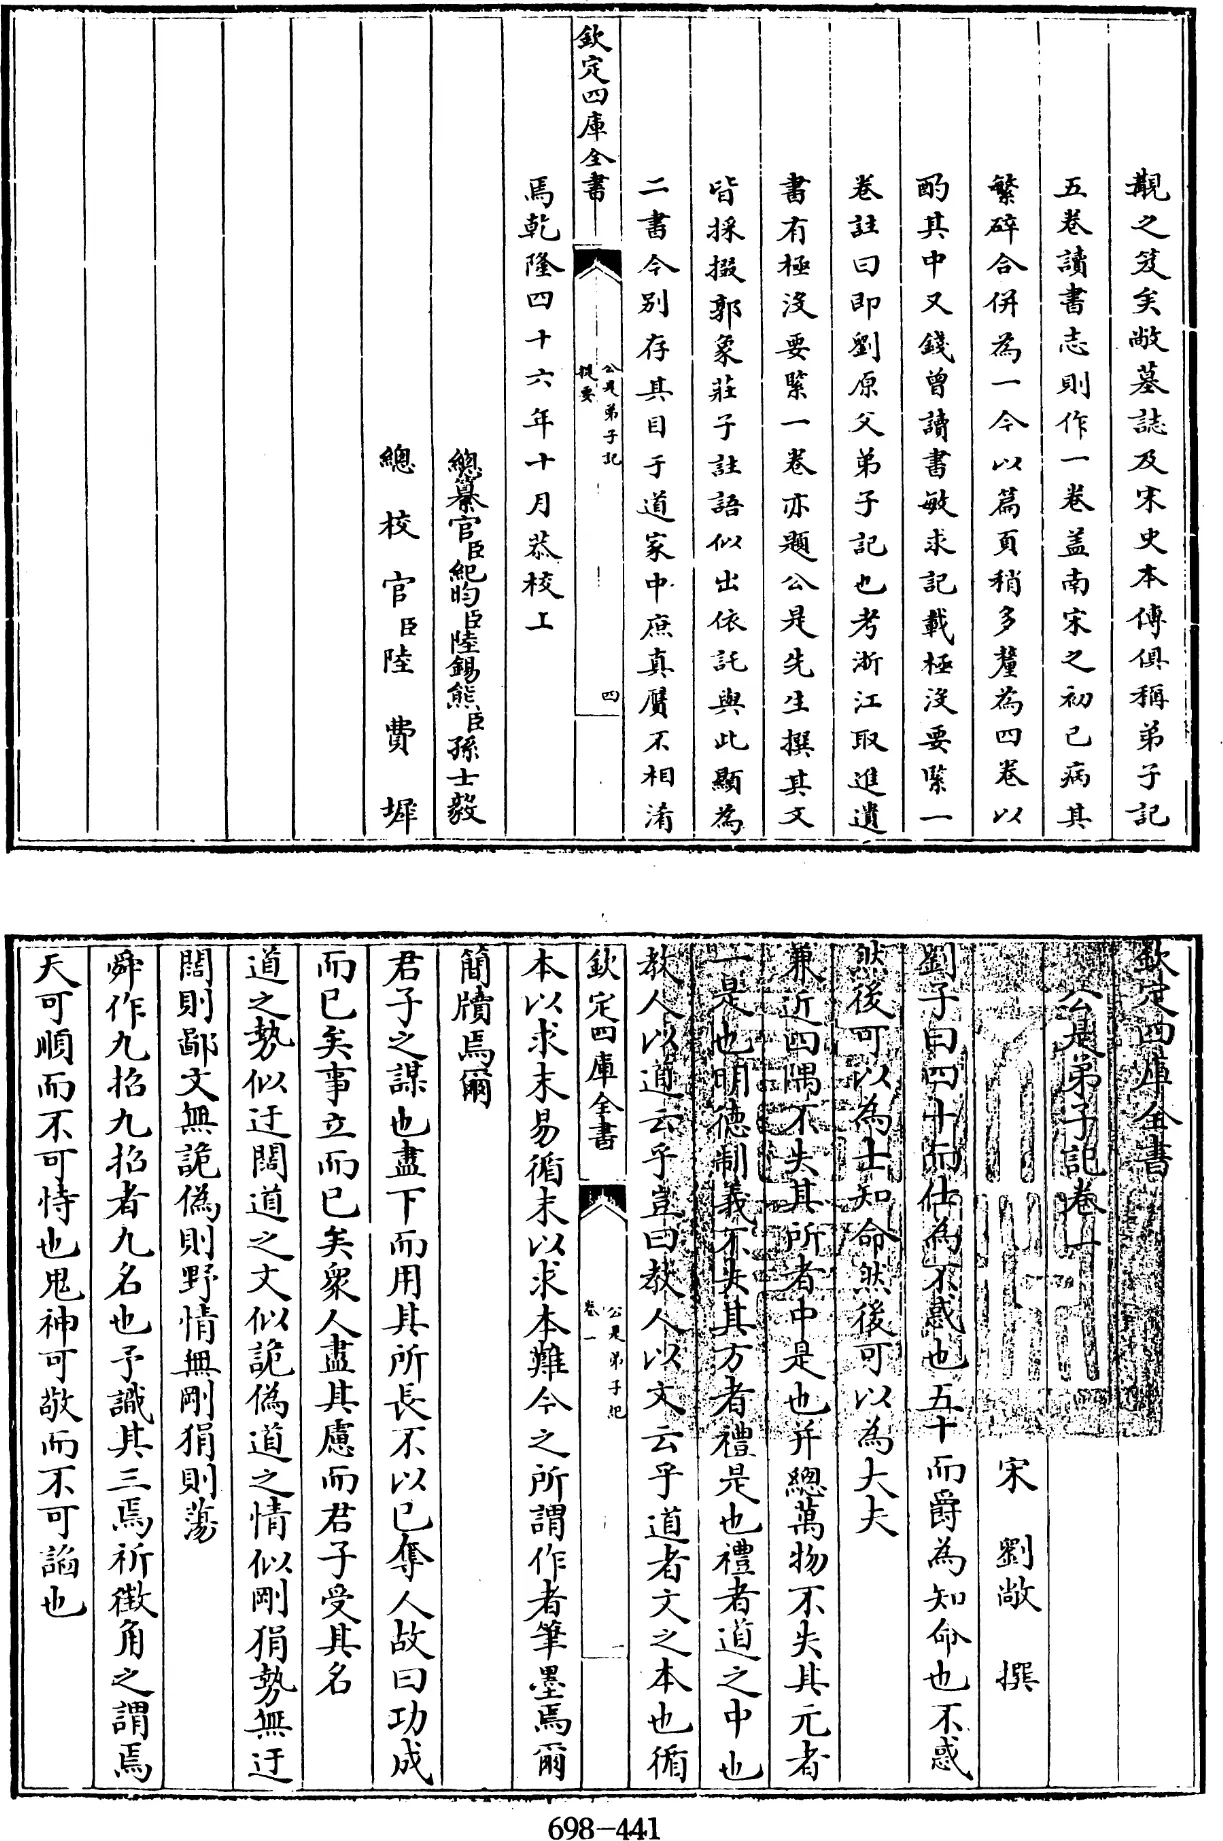 觀之笈矣敞墓誌及宋史本傳俱稱弟子記
五卷讀書志則作一卷盖南宋之初已病其
繁碎合併為一今以篇頁稍多釐為四卷以
酌其中又錢曾讀書敏求記載極沒要緊一
卷註曰即劉原父弟子記也考浙江取進遺
書有極沒要緊一卷亦題公是先生撰其文
皆採掇郭象莊子註語似出依託與此顯為
二書今别存其目于道家中庶真贋不相淆
欽定四庫全書
公是弟子記
提要
四
焉乾隆四十六年十月恭校上
總纂官臣紀昀臣陸錫熊臣孫士毅
總校官臣陸費墀
欽定四庫全書
公是弟子記卷一
宋 劉敞 撰
劉子曰四十而仕為不惑也五十而爵為知命也不惑
然後可以為士知命然後可以為大夫
兼近四隅不失其所者中是也并總萬物不失其元者
一是也明德制義不失其方者禮是也禮者道之中也
教人以道云乎豈曰教人以文云乎道者文之本也循
欽定四庫全書
公是弟子記
卷一
一
本以求末易循末以求本難今之所謂作者筆墨焉爾
簡牘焉爾
君子之謀也盡下而用其所長不以己奪人故曰功成
而已矣事立而已矣衆人盡其慮而君子受其名
道之勢似迂闊道之文似詭偽道之情似剛狷勢無迂
闊則鄙文無詭偽則野情無剛狷則蕩
舜作九招九招者九名也予識其三焉祈徵角之謂焉
天可順而不可恃也鬼神可敬而不可諂也
698-441